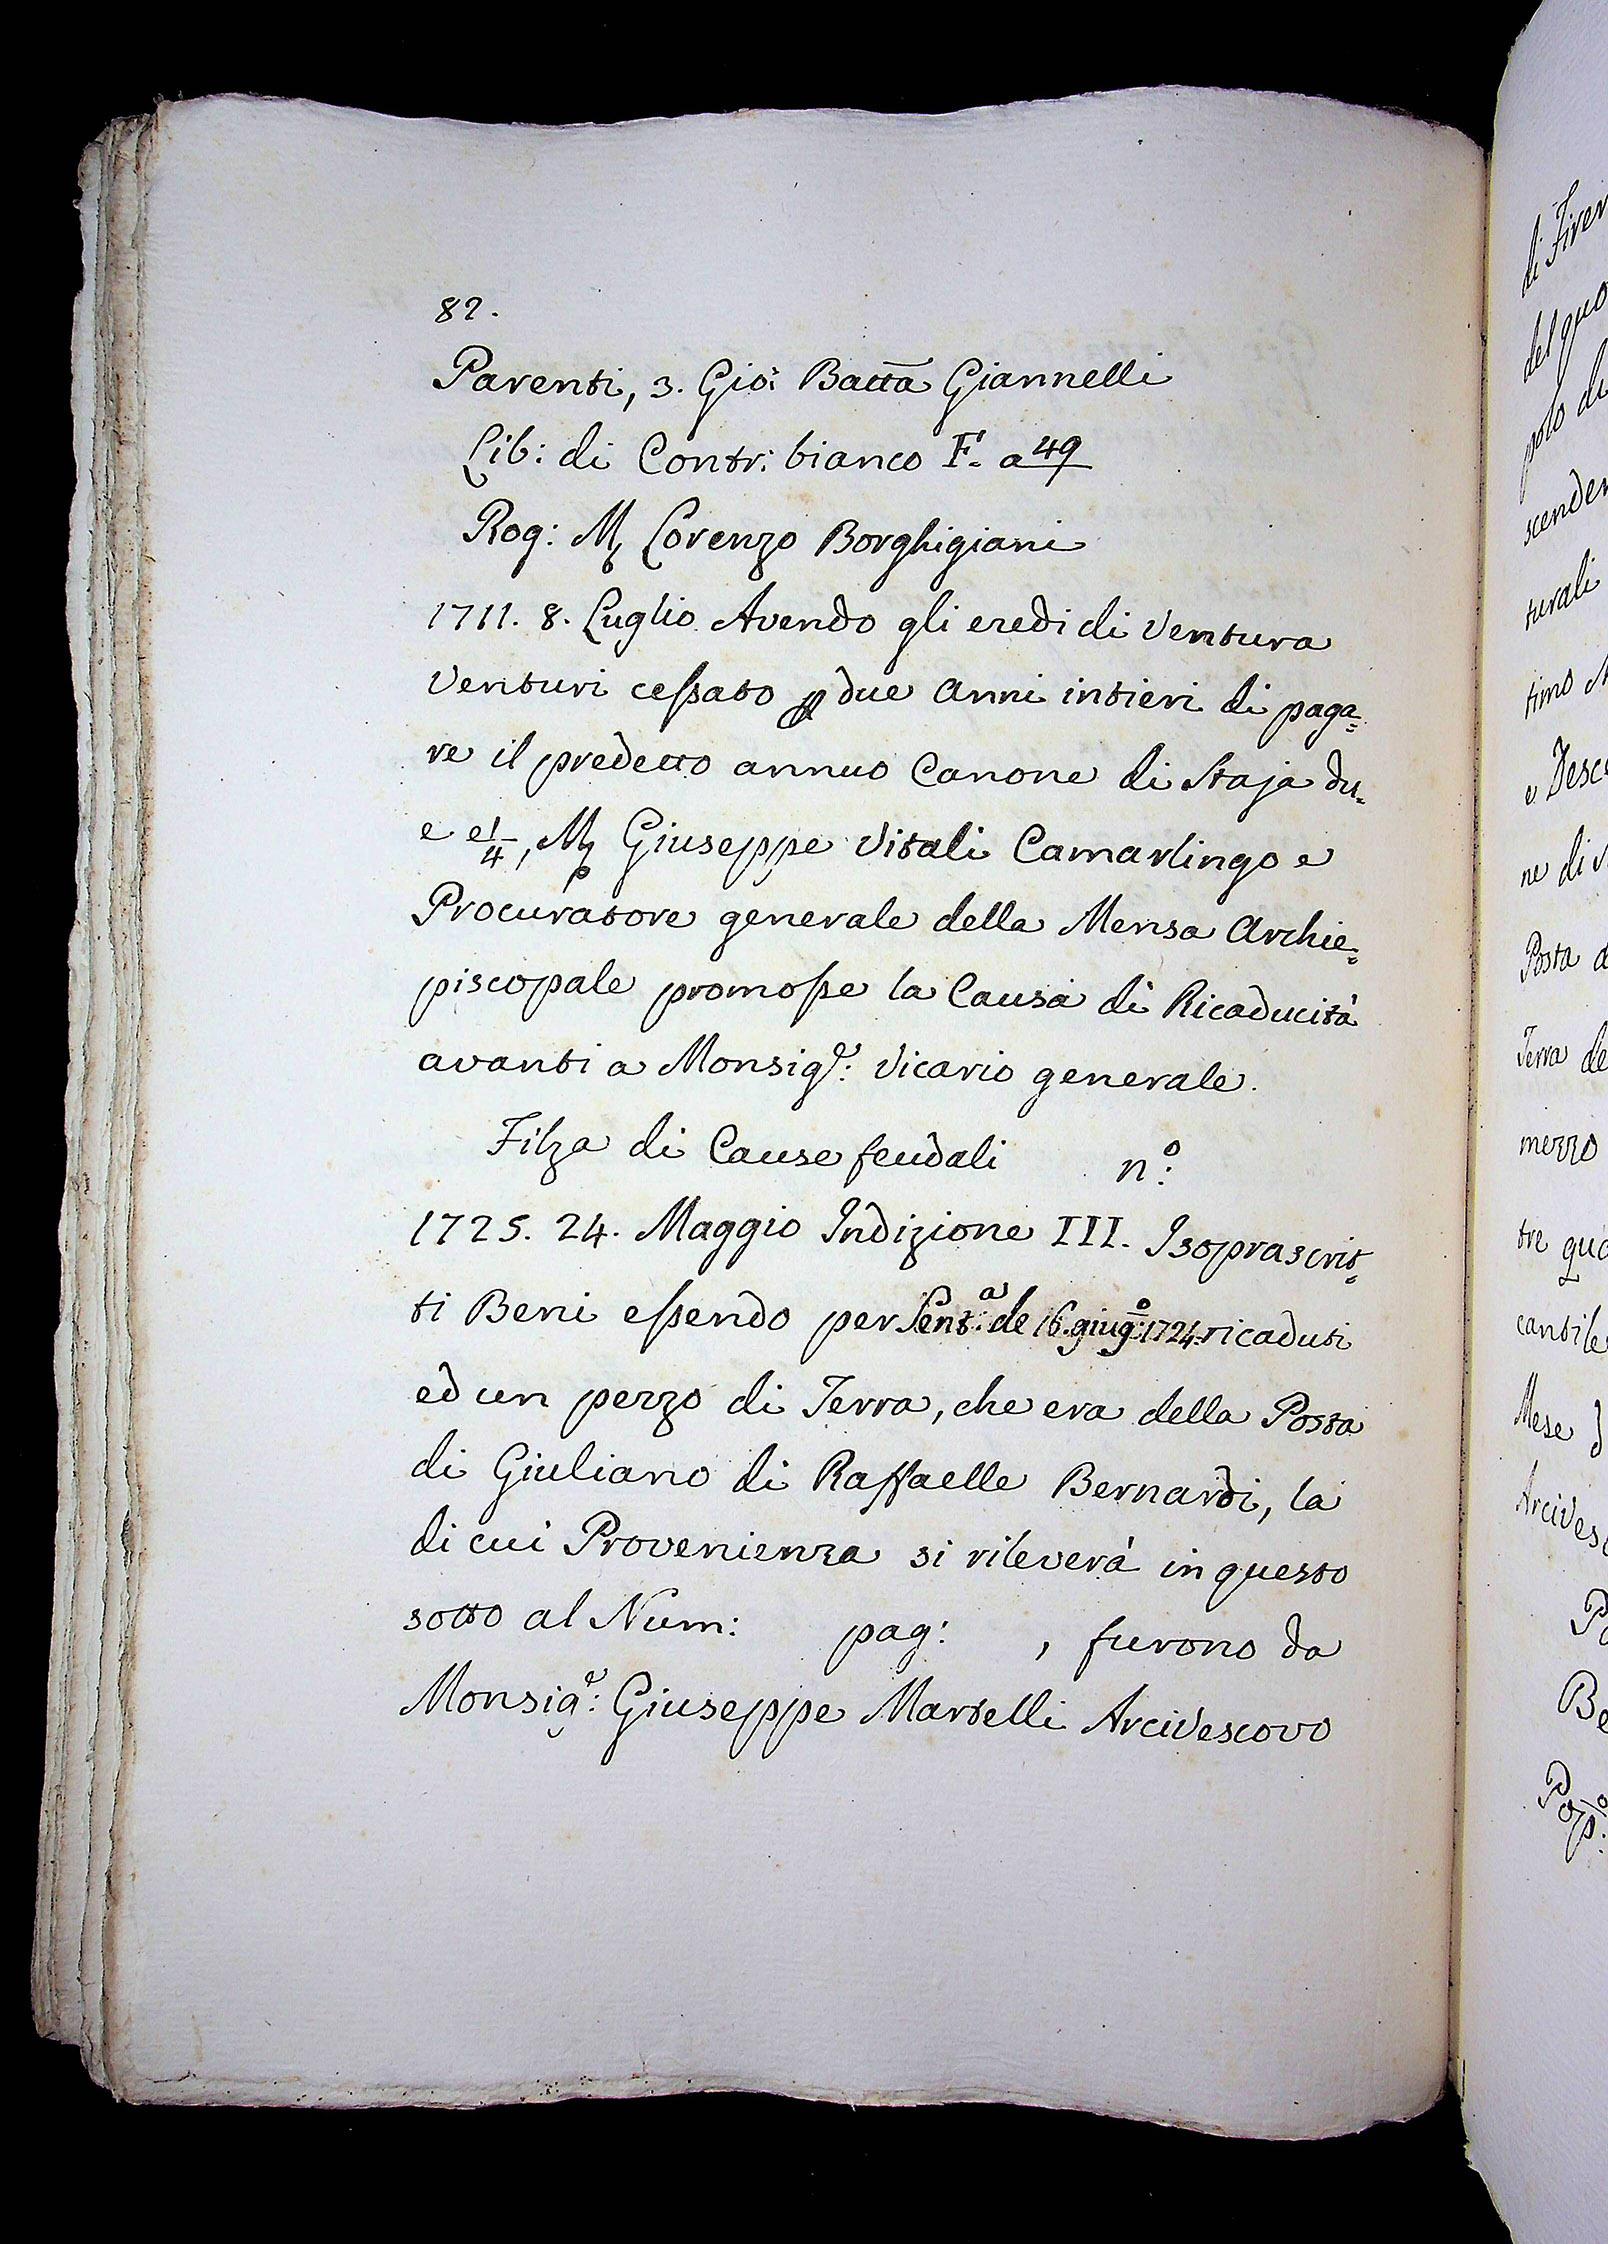 82.
Parenti, 3. Gio: Batta Giannelli
Lib: di Contr: bianco F. a 49
Rog: Mr Lorenzo Borghigiani
1711. 8. Luglio Avendo gli eredi di Ventura
Venturi cessato p due anni intieri di paga=
re il predetto annuo Canone di Staja du=
e e 1/4, Mr Giuseppe Vitali Camarlingo e
Procuratore generale della Mensa Archie=
piscopale promosse la Causa di Ricaducità
avanti a Monsigr: Vicario generale.
Filza di Cause feudali no:
1725. 24. Maggio Indizione III. I soprascrit=
ti Beni essendo per Senta: de 16. giugo: 1724. ricaduti
ed un pezzo di Terra, che era della Posta
di Giuliano di Raffaelle Bernardi, la
di cui Provenienza si rileverà in questo
sotto al Num: pag: , furono da
Monsigr: Giuseppe Martelli Arcivescovo
del quo
polo di
turali
e Desco
ne di
Posta d
Terra de
mezzo
tre qua
cantile
Mese d
Arcivesc
Be